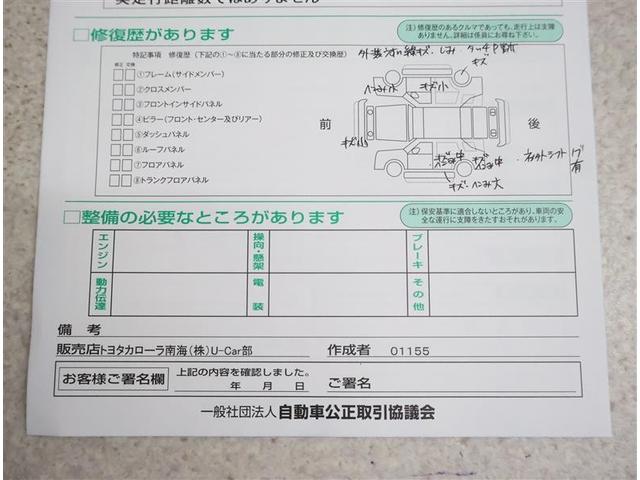 □修復歴があります
注)修復歴のあるクルマであっても、走行上は支障
ありません。詳細は係員にお尋ね下さい。
特記事項 修復歴(下記の①〜⑧に当たる部分の修正及び交換歴)
外装うすい線キズ・しみ タッチP跡有
修正 交換
キズ
①フレーム(サイドメンバー)
②クロスメンバー
ヘコミ小
キズ小
③フロントインサイドパネル
④ピラー(フロント・センター及びリアー)
前
後
⑤ダッシュパネル
キズ小
⑥ルーフパネル
⑦フロアパネル
有
⑧トランクフロアパネル
キズ・ヘコミ大
□整備の必要なところがあります
注)保安基準に適合しないところがあり、車両の安
全な運行に支障をきたすおそれがあります。
エンジン
操向・懸架
ブレーキ
動力伝達
電装
その他
備考
販売店トヨタカローラ南海(株)U-Car部 作成者 01155
お客様ご署名欄
上記の内容を確認しました。
年 月 日
ご署名
一般社団法人 自動車公正取引協議会